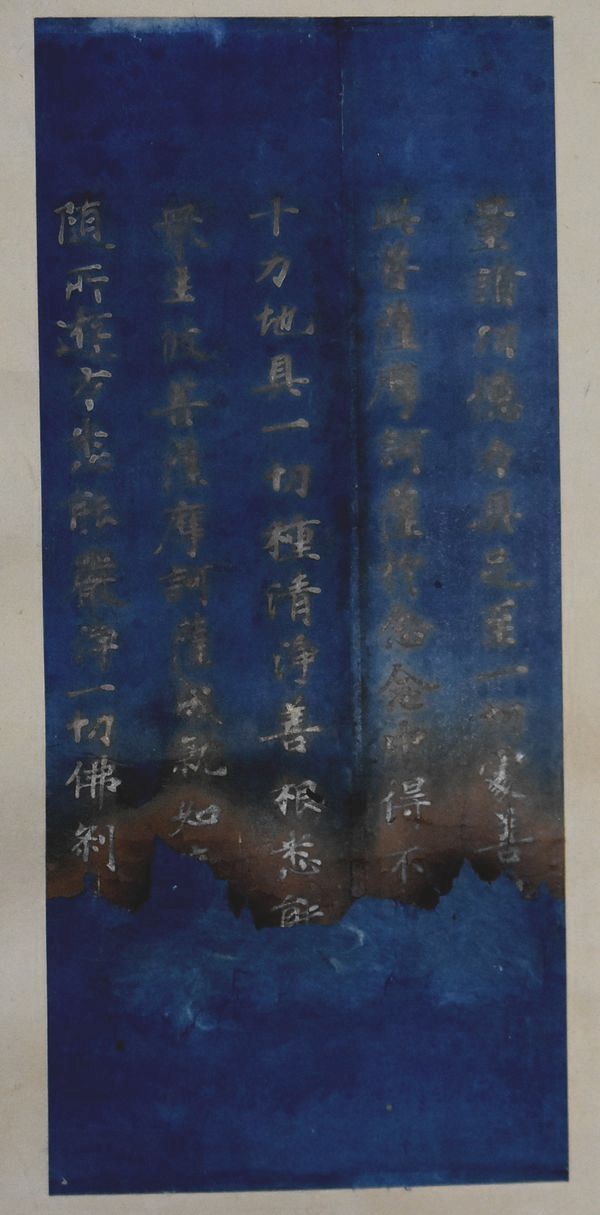 量諸功德力具足至一切處善
菩薩摩訶薩於念念中得不
十力地具一切種清淨善根悉能
衆生故菩薩摩訶薩成就如
隨所遊方悉能嚴淨一切佛刹